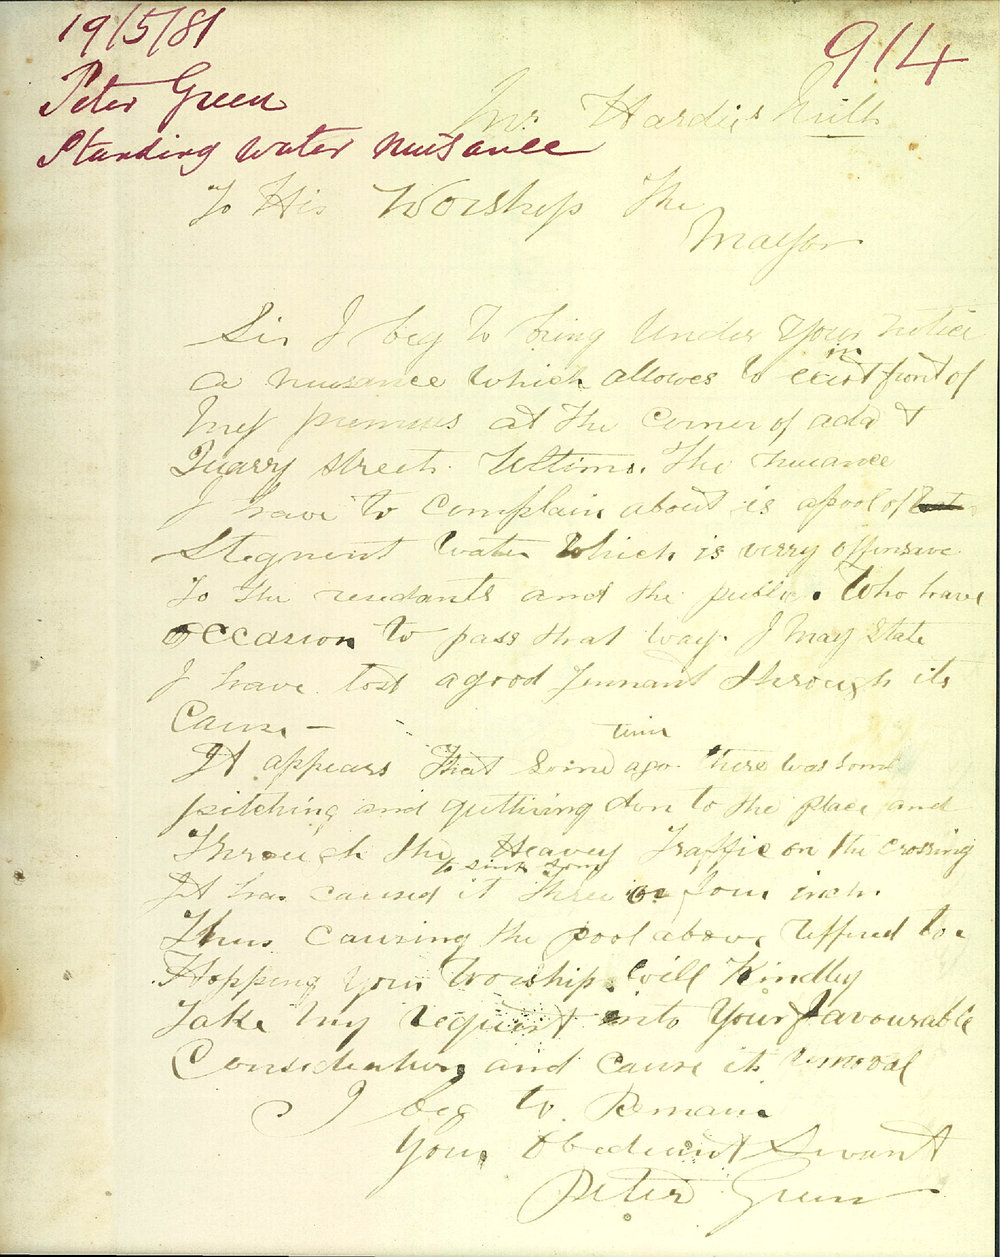 19/5/81
914
Peter Green
Standing water nuisance
To His Worship The
Mayor
Sir I beg to bring Under Your notice
a nuisance which allowes to exist in front of
my premises at the corner of ada &
Quarry street Ultimo. The nuisance
I have to complain about is a pool of
Stegnent water Which is verry offensive
To the residants and the public. Who have
occasion to pass that way. I May State
I have lost a good Tennant through its
Cause —
It appears That some time ago there was some
pitching and guttering don to the place and
Through the Heavey Traffic on the crossing
It has caused it to sink some Three or four inch.
Thus causing the pool above reffered to.
Hopping Your Worship will Kindley
Take my request into Your favourable
Consideration and cause its removal
I beg to Remain
Your Obediant Servant
Peter Green